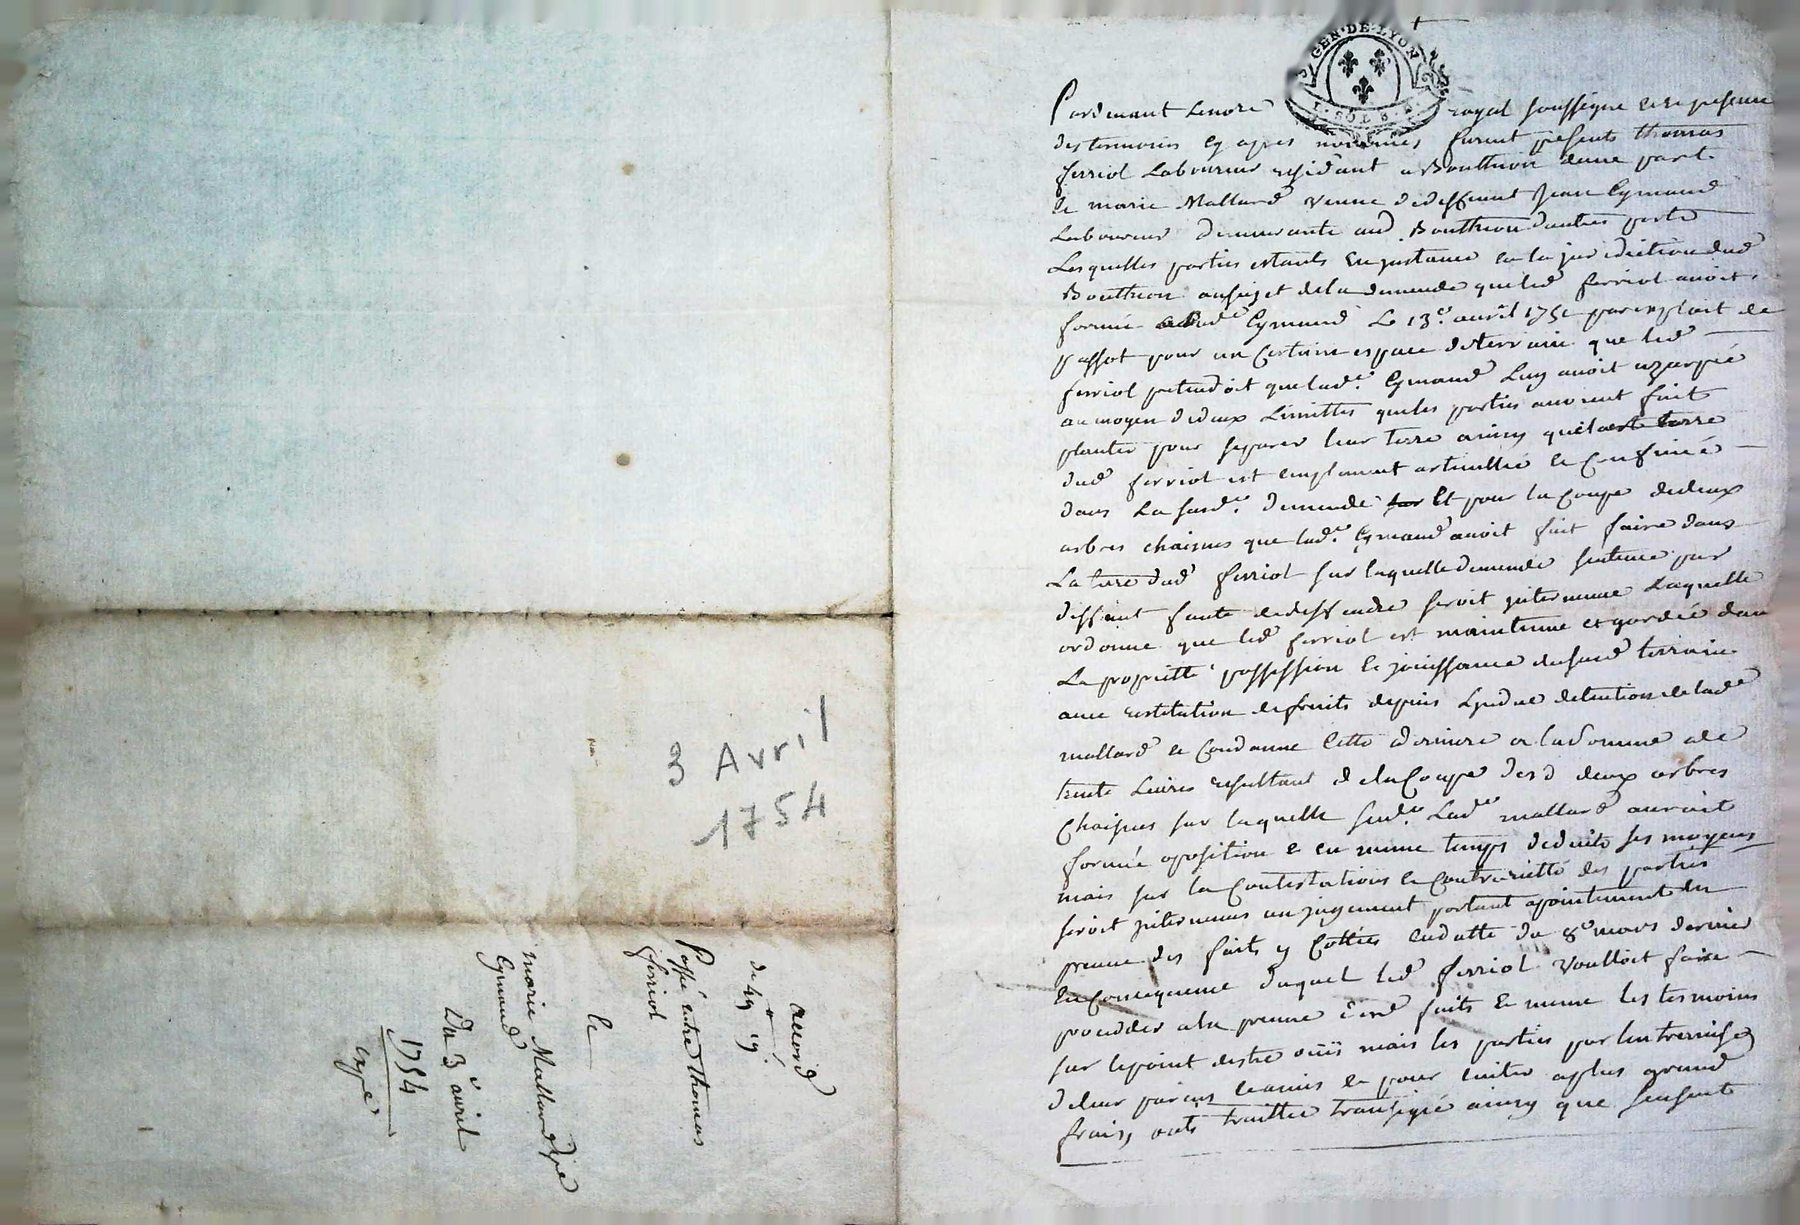 3 Avril
1754
accord
de 49 19
Passé entre Thomas
ferriol
Et
marie Mallard
Eymard
Du 3e avril
1754
GEN·DE·LYON
Pardevant Lenore royal soussigne et en presence
des temoins cy apres nommés furent presents thomas
ferriol Laboureur residant a Bouthéon dune part
Et marie Mallard veuve de deffunt Jean Eymard
Laboureur demeurante aud Bouthéon dautre parte
Lesquelles parties estants en jnstance en la juridiction dud
Bouthéon ausujet dela demande queled ferriol avoit
formé Eymard Le 13e avril 175 par exploit de
passot pour un Certain espace deterrain que led
ferriol pretendoit quelade Eymard Luy avoit uzurpé
au moyen dedeux Limittes queles parties avoient fait
planter pour separer leur terre ainsy terre
dud ferriol est emplement articullée et Confinée
dans La susde demande Et pour la Coupe dedeux
arbres chaisnes que lade Eymard avoit fait faire dans
La terre dud ferriol sur laquelle demande sentence par
deffaut faute dedeffendre seroit jntervenue Laquelle
ordonne que led ferriol est maintenu et gardée dans
La propriette possession et jouissance dususd terrain
avec restitution defruits depuis Lindue detention de lade
mallard et Condanne Cette derniere a la somme de
trente Livres resultant de la Coupe desd deux arbres
Chaisnes sur laquelle Lade mallard auroit
formée oposition et en meme temps deduits ses moyens
mais sur la Contestations et Contrariette des parties
seroit jntervenus un jugement portant apointement en
preuve des faits y Cottés endatte du 8e mars dernier
En Consequence duquel led ferriol voulloit faire
proceder ala preuve desd faits et meme les tesmoins
sur lepoint destre ouïs mais les parties par lentremise
deleur parens et amis et pour eviter aplus grand
frais, onts traitté transigé ainsy que sensuit